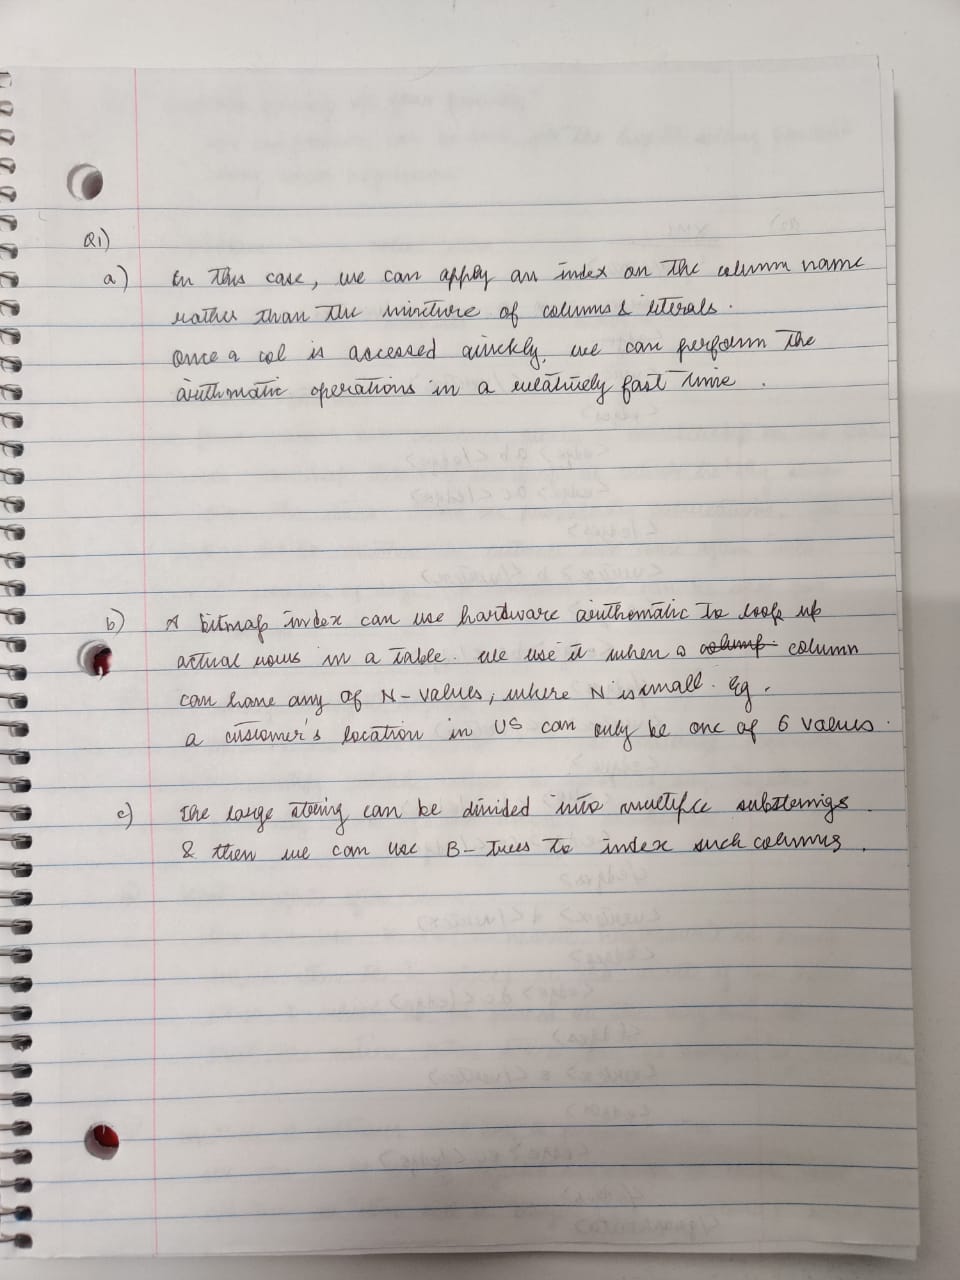 Q1)
a) In this case, we can apply an index on the column name
rather than the mixture of columns & literals.
Once a col is accessed quickly, we can perform the
arithmatic operations in a relatively fast time.
b) A bitmap index can use hardware arithmatic to look up
actual rows in a table. We use it when a column
can have any of N-values, where N is small. Eg.
a customer's location in US can only be one of 6 values.
c) The large string can be divided into multiple substrings
& then we can use B-trees to index such columns.